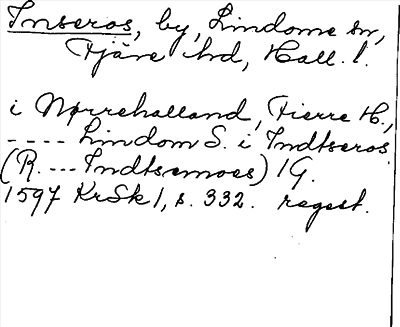 Inseros, by, Lindome sn,
Fjäre hd, Hall. l.
i Nørrehalland, Fierre H.,
---- Lindom S. i Indtseros
(R. --- Indtsemoes) 1G.
1597 KrSk 1, s. 332. regest.